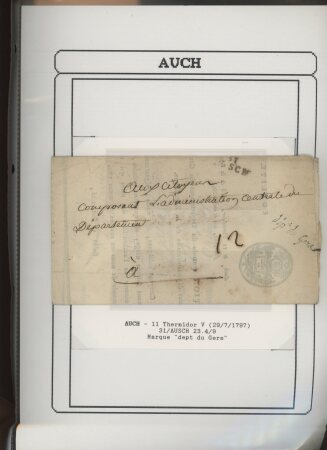 AUCH
31
AUSCH
Aux Citoyens
Composant L'administration Centrale du
Département
12
à
AUCH - 11 Thermidor V (29/7/1797)
31/AUSCH 23.4/9
Marque "dept du Gers"